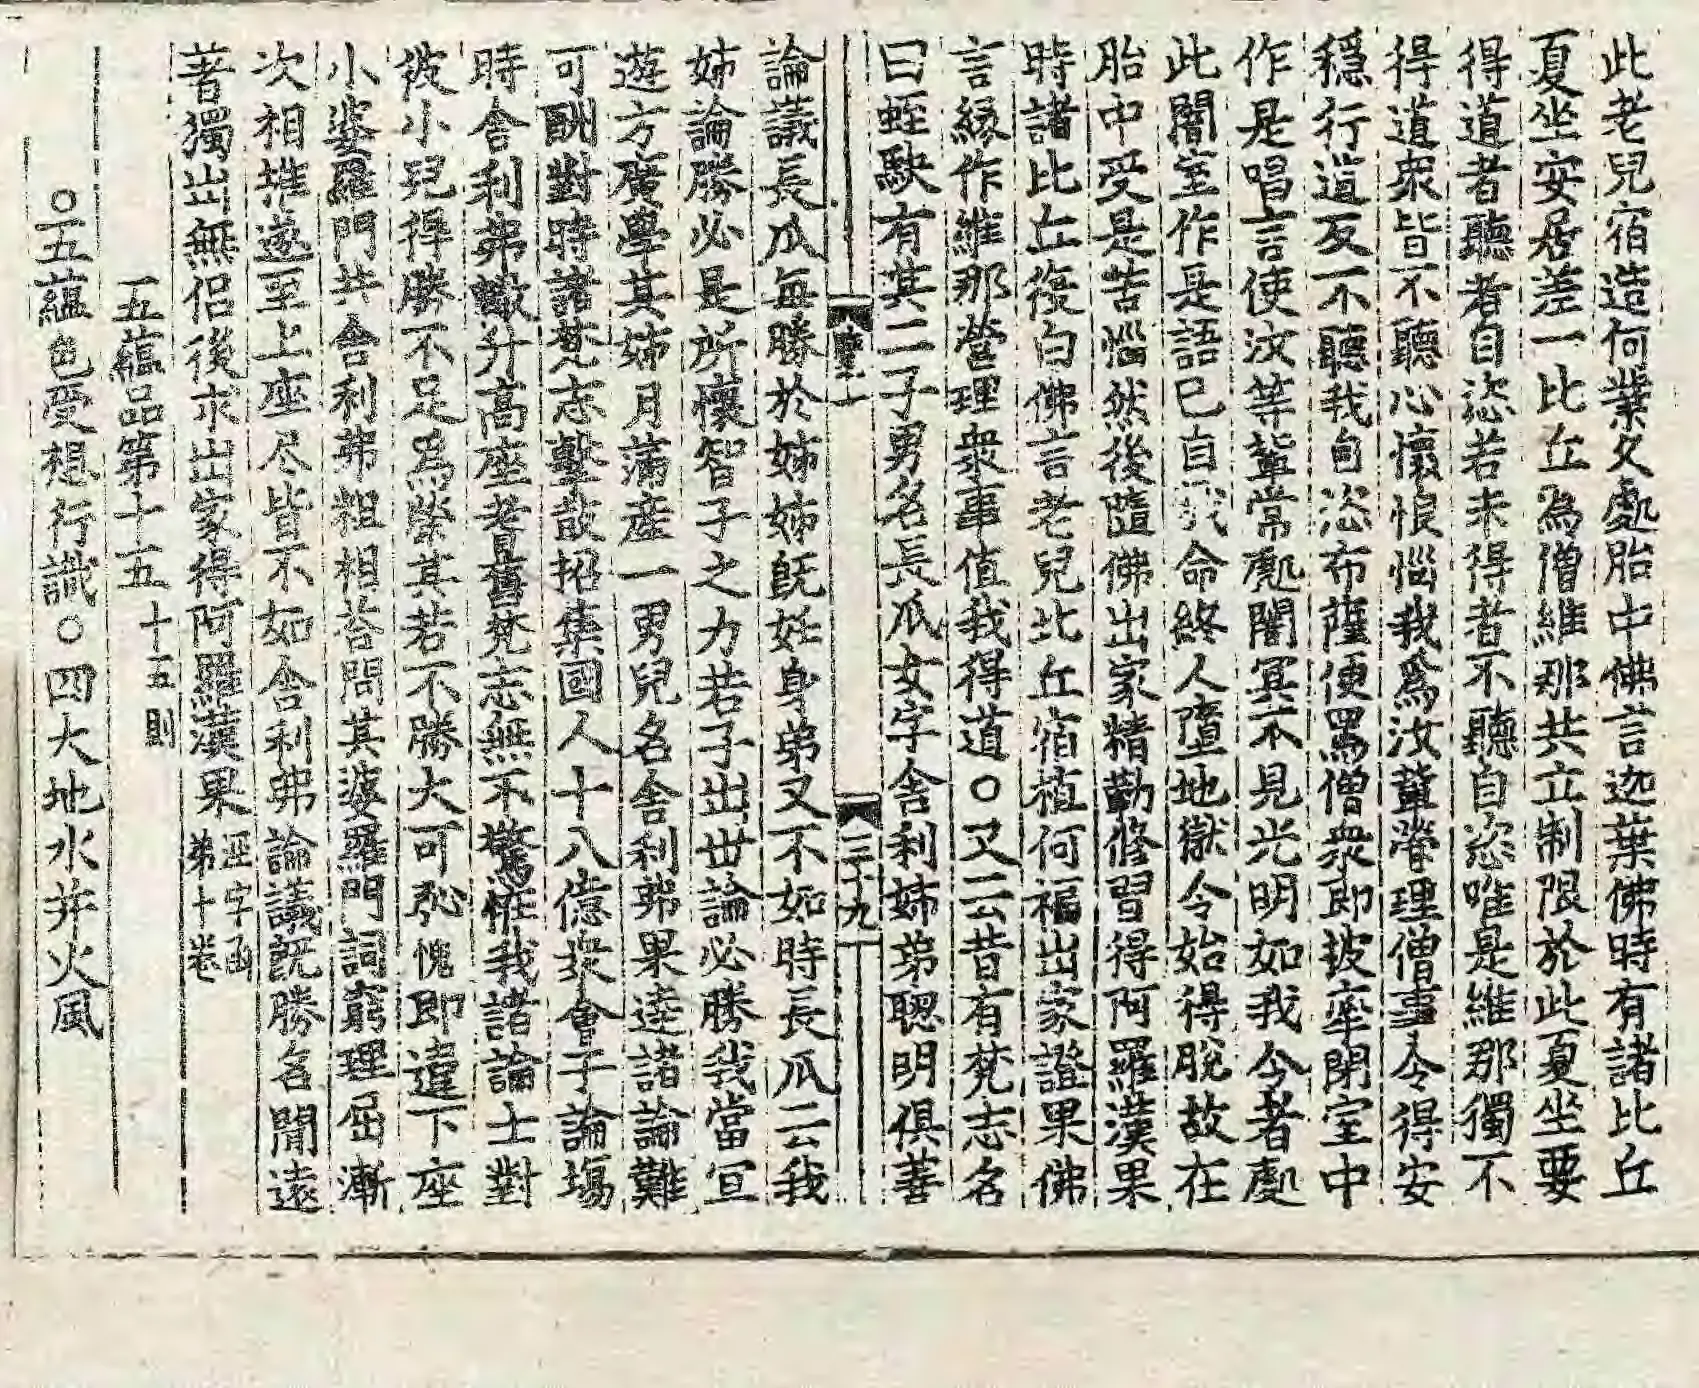 此老兒宿造何業久處胎中佛言迦葉佛時有諸比丘
夏坐安居差一比丘為僧維那共立制限於此夏坐要
得道者聽者自恣若未得者不聽自恣唯是維那獨不
得道衆皆不聽心懷恨惱我爲汝輩營理僧事令得安
穩行道反不聽我自恣布薩便罵僧衆即披牽閉室中
作是唱言使汝等輩常處闇冥不見光明如我今者處
此闇室作是語已自我命終人墮地獄令始得脫故在
胎中受是苦惱然後隨佛出家精勤修習得阿羅漢果
時諸比丘復白佛言老兒比丘宿植何福出家證果佛
言緣作維那營理衆事值我得道○又云昔有梵志名
曰蛭駃有其二子男名長瓜女字舍利姊弟聰明俱善
三十九
論議長瓜每勝於姊姊旣妊身弟又不如時長瓜云我
姊論勝必是所懷智子之力若子出世論必勝我當宣
遊方廣學其姊月滿産一男兒名舍利弗果逹諸論難
可酬對時諸梵志擊鼓招集國人十八億衆會于論塲
時舍利弗輙升高座耆舊梵志無不驚惟我諸論士對
彼小兒得勝不足爲榮其若不勝大可恥愧即違下座
小婆羅門共舍利弗粗相荅問其婆羅門詞窮理屈漸
次相推遂至上座尽皆不如舍利弗論議旣勝名聞遠
著獨出無侶後求出家得阿羅漢果 第十卷
五蘊品第十五 十五則
○五蘊色受想行識○四大地水并火風